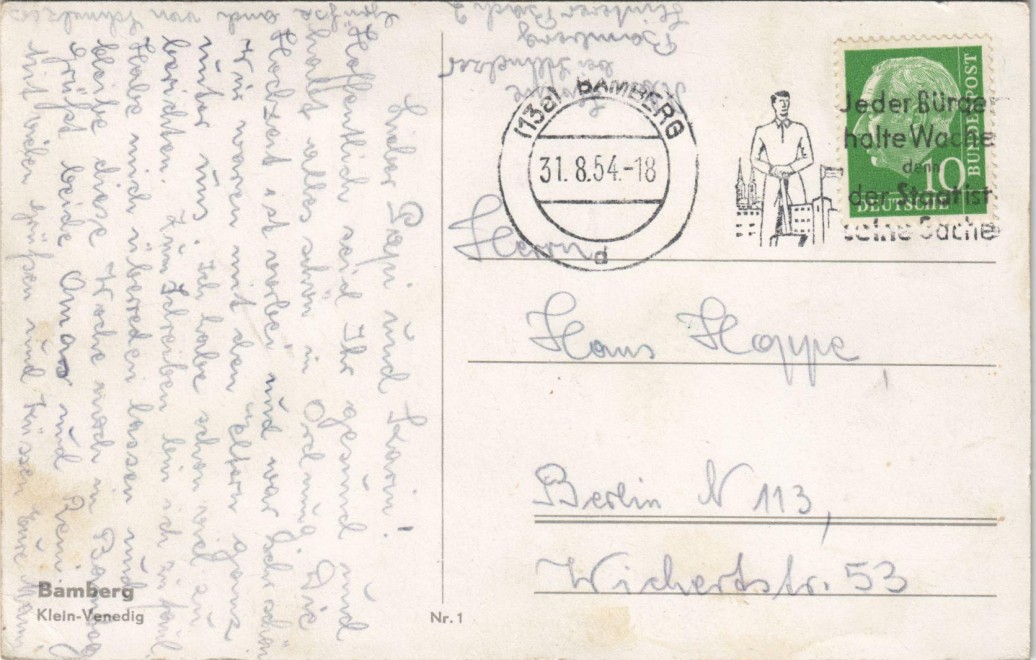 Lieber Papi und Karin!
Hoffentlich seid Ihr gesund und
habt alles schön in Ordnung. Die
Hochzeit ist vorbei und war sehr schön
Wir waren mit den Eltern ganz
unter uns. Ich habe schon viel zu
berichten. Zum Schreiben bin ich zu faul
Habe mich überreden lassen und
bleibe diese Woche noch in Bamberg
Grüßt beide Omas und
Mit vielen Grüßen und Küssen eure Mami
Grüße auch von
bei
Bamberg
(13a) BAMBERG
31.8.54.-18
d
Jeder Bürger
halte Wache
denn
der Staat ist
seine Sache
DEUTSCHE
BUNDESPOST
10
Herrn
Hans Hoppe
Berlin N 113,
Wichertstr. 53
Bamberg
Klein-Venedig
Nr. 1